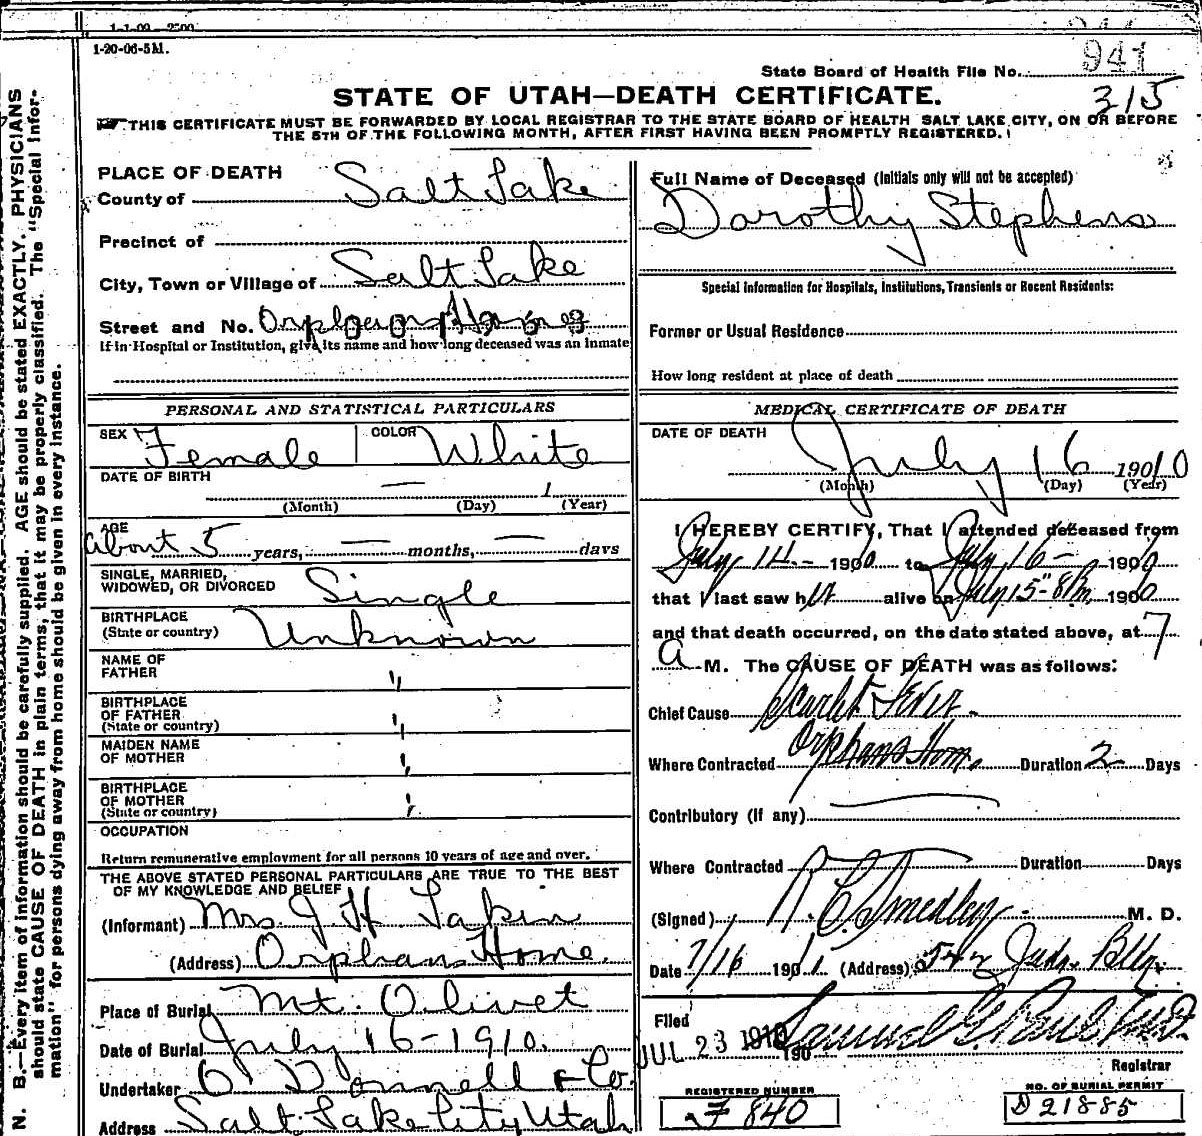 1-20-06-5M.
941
State Board of Health File No.
STATE OF UTAH—DEATH CERTIFICATE.
315
THIS CERTIFICATE MUST BE FORWARDED BY LOCAL REGISTRAR TO THE STATE BOARD OF HEALTH SALT LAKE CITY, ON OR BEFORE
THE 5TH OF THE FOLLOWING MONTH, AFTER FIRST HAVING BEEN PROMPTLY REGISTERED.
PLACE OF DEATH
County of Salt Lake
Precinct of
City, Town or Village of Salt Lake
Street and No. Orphans Home
If in Hospital or Institution, give its name and how long deceased was an inmate
PERSONAL AND STATISTICAL PARTICULARS
SEX Female COLOR White
DATE OF BIRTH —
(Month) (Day) (Year)
AGE
about 5 years, — months, — days
SINGLE, MARRIED,
WIDOWED, OR DIVORCED Single
BIRTHPLACE
(State or country) Unknown
NAME OF
FATHER "
BIRTHPLACE
OF FATHER "
(State or country)
MAIDEN NAME
OF MOTHER "
BIRTHPLACE
OF MOTHER "
(State or country)
OCCUPATION
Return remunerative employment for all persons 10 years of age and over.
THE ABOVE STATED PERSONAL PARTICULARS ARE TRUE TO THE BEST
OF MY KNOWLEDGE AND BELIEF
(Informant) Mrs J H Lakin
(Address) Orphans Home.
Place of Burial Mt. Olivet
Date of Burial July 16-1910.
Undertaker O'Donnell & Co.
Address Salt Lake City Utah
Full Name of Deceased (Initials only will not be accepted)
Dorothy Stephens
Special Information for Hospitals, Institutions, Transients or Recent Residents:
Former or Usual Residence
How long resident at place of death
MEDICAL CERTIFICATE OF DEATH
DATE OF DEATH
July 16 1910
(Month) (Day) (Year)
I HEREBY CERTIFY, That I attended deceased from
July 14- 1910 to July 16- 1910
that I last saw her alive on July 15- 8 P.m. 1910
and that death occurred, on the date stated above, at 7
a M. The CAUSE OF DEATH was as follows:
Chief Cause Scarlet Fever
Where Contracted Orphans Home, Duration 2 Days
Contributory (if any)
Where Contracted Duration Days
(Signed) R. C. Smedley M. D.
Date 7/16 191 (Address) Judge Bldg.
Filed
JUL 23 1910 190
Registrar
REGISTERED NUMBER
F 840
NO. OF BURIAL PERMIT
D 21885
N. B.—Every item of information should be carefully supplied. AGE should be stated EXACTLY. PHYSICIANS
should state CAUSE OF DEATH in plain terms, that it may be properly classified. The "Special Infor-
mation" for persons dying away from home should be given in every instance.